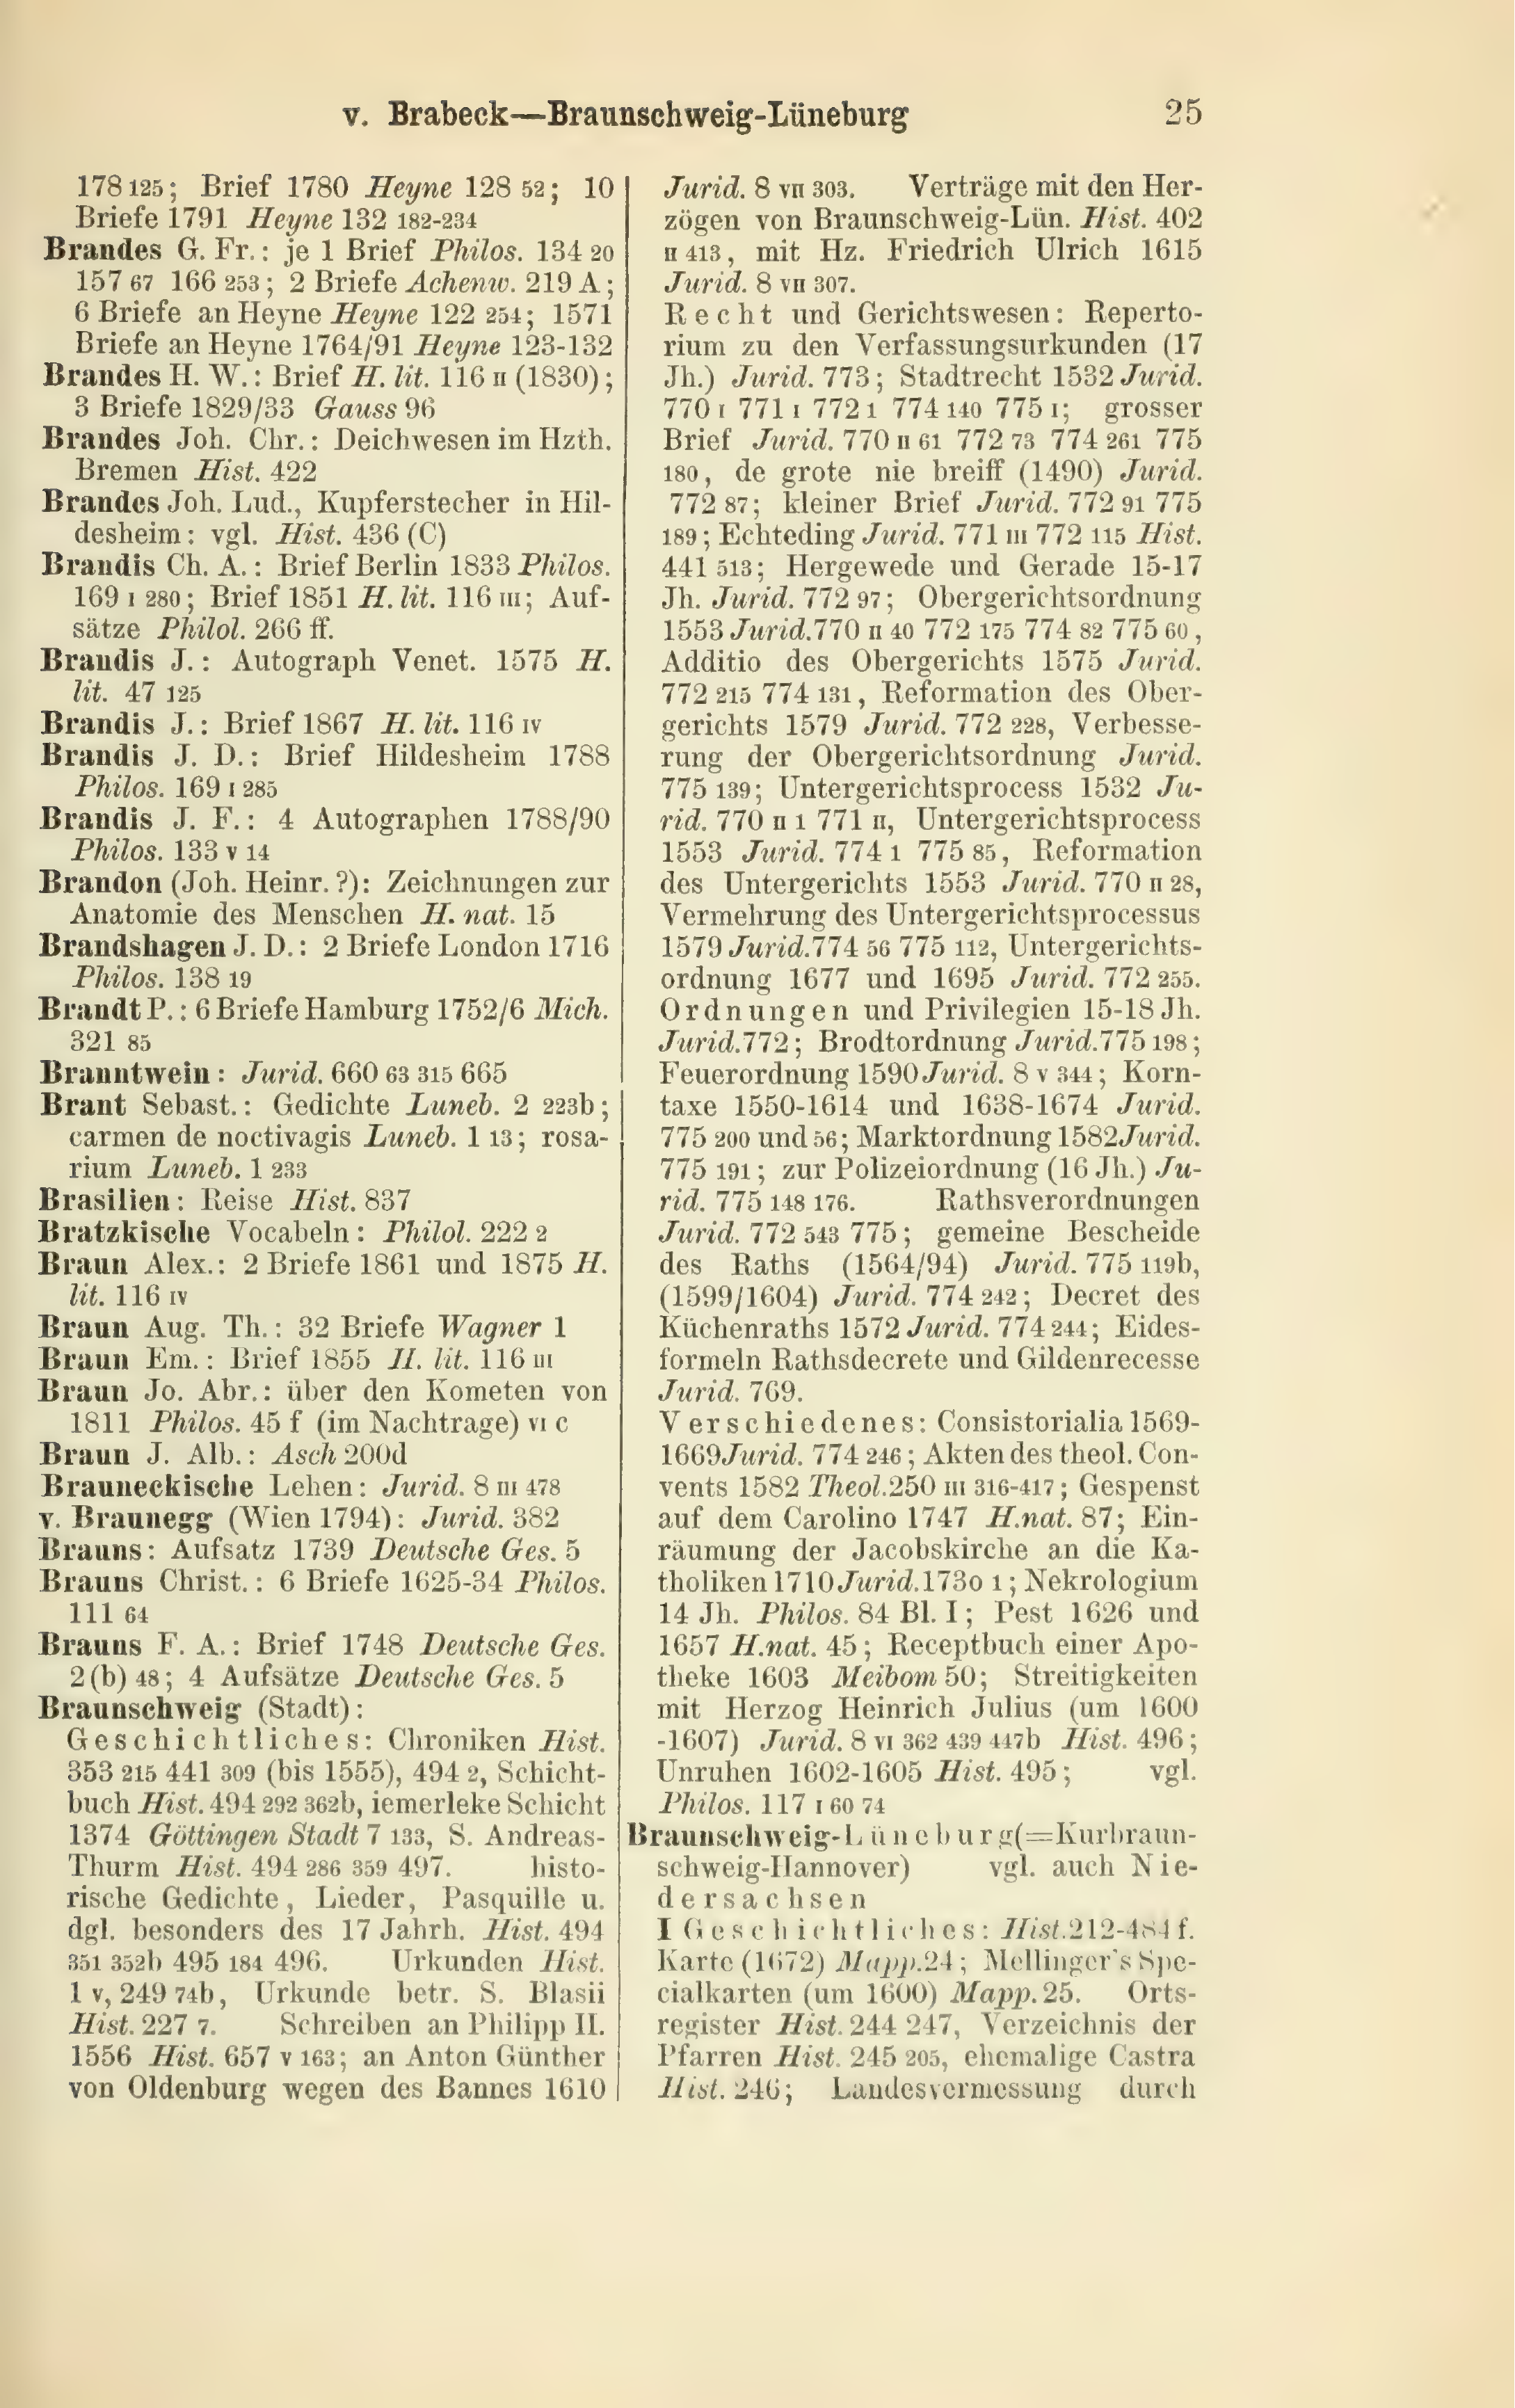 v. Brabeck—Braunschweig-Lüneburg 25
178 125; Brief 1780 Heyne 128 52; 10
Briefe 1791 Heyne 132 182-234
Brandes G. Fr.: je 1 Brief Philos. 134 20
157 67 166 253; 2 Briefe Achenw. 219 A;
6 Briefe an Heyne Heyne 122 254; 1571
Briefe an Heyne 1764/91 Heyne 123-132
Brandes H. W.: Brief H. lit. 116 II (1830);
3 Briefe 1829/33 Gauss 96
Brandes Joh. Chr.: Deichwesen im Hzth.
Bremen Hist. 422
Brandes Joh. Lud., Kupferstecher in Hil-
desheim: vgl. Hist. 436 (C)
Brandis Ch. A.: Brief Berlin 1833 Philos.
169 I 280; Brief 1851 H. lit. 116 III; Auf-
sätze Philol. 266 ff.
Brandis J.: Autograph Venet. 1575 H.
lit. 47 125
Brandis J.: Brief 1867 H. lit. 116 IV
Brandis J. D.: Brief Hildesheim 1788
Philos. 169 I 285
Brandis J. F.: 4 Autographen 1788/90
Philos. 133 V 14
Brandon (Joh. Heinr.?): Zeichnungen zur
Anatomie des Menschen H. nat. 15
Brandshagen J. D.: 2 Briefe London 1716
Philos. 138 19
Brandt P.: 6 Briefe Hamburg 1752/6 Mich.
321 85
Branntwein: Jurid. 660 63 315 665
Brant Sebast.: Gedichte Luneb. 2 223b;
carmen de noctivagis Luneb. 1 13; rosa-
rium Luneb. 1 233
Brasilien: Reise Hist. 837
Bratzkische Vocabeln: Philol. 222 2
Braun Alex.: 2 Briefe 1861 und 1875 H.
lit. 116 IV
Braun Aug. Th.: 32 Briefe Wagner 1
Braun Em.: Brief 1855 H. lit. 116 III
Braun Jo. Abr.: über den Kometen von
1811 Philos. 45 f (im Nachtrage) VI C
Braun J. Alb.: Asch 200d
Brauneckische Lehen: Jurid. 8 III 478
v. Braunegg (Wien 1794): Jurid. 382
Brauns: Aufsatz 1739 Deutsche Ges. 5
Brauns Christ.: 6 Briefe 1625-34 Philos.
111 64
Brauns F. A.: Brief 1748 Deutsche Ges.
2 (b) 48; 4 Aufsätze Deutsche Ges. 5
Braunschweig (Stadt):
Geschichtliches: Chroniken Hist.
353 215 441 309 (bis 1555), 494 2, Schicht-
buch Hist. 494 292 362b, iemerleke Schicht
1374 Göttingen Stadt 7 133, S. Andreas-
Thurm Hist. 494 286 359 497. histo-
rische Gedichte, Lieder, Pasquille u.
dgl. besonders des 17 Jahrh. Hist. 494
351 352b 495 184 496. Urkunden Hist.
1 V, 249 74b, Urkunde betr. S. Blasii
Hist. 227 7. Schreiben an Philipp II.
1556 Hist. 657 V 163; an Anton Günther
von Oldenburg wegen des Bannes 1610
Jurid. 8 VII 303. Verträge mit den Her-
zögen von Braunschweig-Lün. Hist. 402
II 413, mit Hz. Friedrich Ulrich 1615
Jurid. 8 VII 307.
Recht und Gerichtswesen: Reperto-
rium zu den Verfassungsurkunden (17
Jh.) Jurid. 773; Stadtrecht 1532 Jurid.
770 I 771 I 772 1 774 140 775 1; grosser
Brief Jurid. 770 II 61 772 73 774 261 775
180, de grote nie breiff (1490) Jurid.
772 87; kleiner Brief Jurid. 772 91 775
189; Echteding Jurid. 771 III 772 115 Hist.
441 513; Hergewede und Gerade 15-17
Jh. Jurid. 772 97; Obergerichtsordnung
1553 Jurid. 770 II 40 772 175 774 82 775 60,
Additio des Obergerichts 1575 Jurid.
772 215 774 131, Reformation des Ober-
gerichts 1579 Jurid. 772 228, Verbesse-
rung der Obergerichtsordnung Jurid.
775 139; Untergerichtsprocess 1532 Ju-
rid. 770 II 1 771 II, Untergerichtsprocess
1553 Jurid. 774 1 775 85, Reformation
des Untergerichts 1553 Jurid. 770 II 28,
Vermehrung des Untergerichtsprocessus
1579 Jurid. 774 56 775 112, Untergerichts-
ordnung 1677 und 1695 Jurid. 772 255.
Ordnungen und Privilegien 15-18 Jh.
Jurid. 772; Brodtordnung Jurid. 775 198;
Feuerordnung 1590 Jurid. 8 V 344; Korn-
taxe 1550-1614 und 1638-1674 Jurid.
775 200 und 56; Marktordnung 1582 Jurid.
775 191; zur Polizeiordnung (16 Jh.) Ju-
rid. 775 148 176. Rathsverordnungen
Jurid. 772 543 775; gemeine Bescheide
des Raths (1564/94) Jurid. 775 119b,
(1599/1604) Jurid. 774 242; Decret des
Küchenraths 1572 Jurid. 774 244; Eides-
formeln Rathsdecrete und Gildenrecesse
Jurid. 769.
Verschiedenes: Consistorialia 1569-
1669 Jurid. 774 246; Akten des theol. Con-
vents 1582 Theol. 250 III 316-417; Gespenst
auf dem Carolino 1747 H. nat. 87; Ein-
räumung der Jacobskirche an die Ka-
tholiken 1710 Jurid. 173o 1; Nekrologium
14 Jh. Philos. 84 Bl. I; Pest 1626 und
1657 H. nat. 45; Receptbuch einer Apo-
theke 1603 Meibom 50; Streitigkeiten
mit Herzog Heinrich Julius (um 1600
-1607) Jurid. 8 VI 362 439 447b Hist. 496;
Unruhen 1602-1605 Hist. 495; vgl.
Philos. 117 I 60 74
Braunschweig-Lüneburg (=Kurbraun-
schweig-Hannover) vgl. auch Nie-
dersachsen
I Geschichtliches: Hist. 212-484 f.
Karte (1672) Mapp. 24; Mellinger's Spe-
cialkarten (um 1600) Mapp. 25. Orts-
register Hist. 244 247, Verzeichnis der
Pfarren Hist. 245 205, ehemalige Castra
Hist. 246; Landesvermessung durch